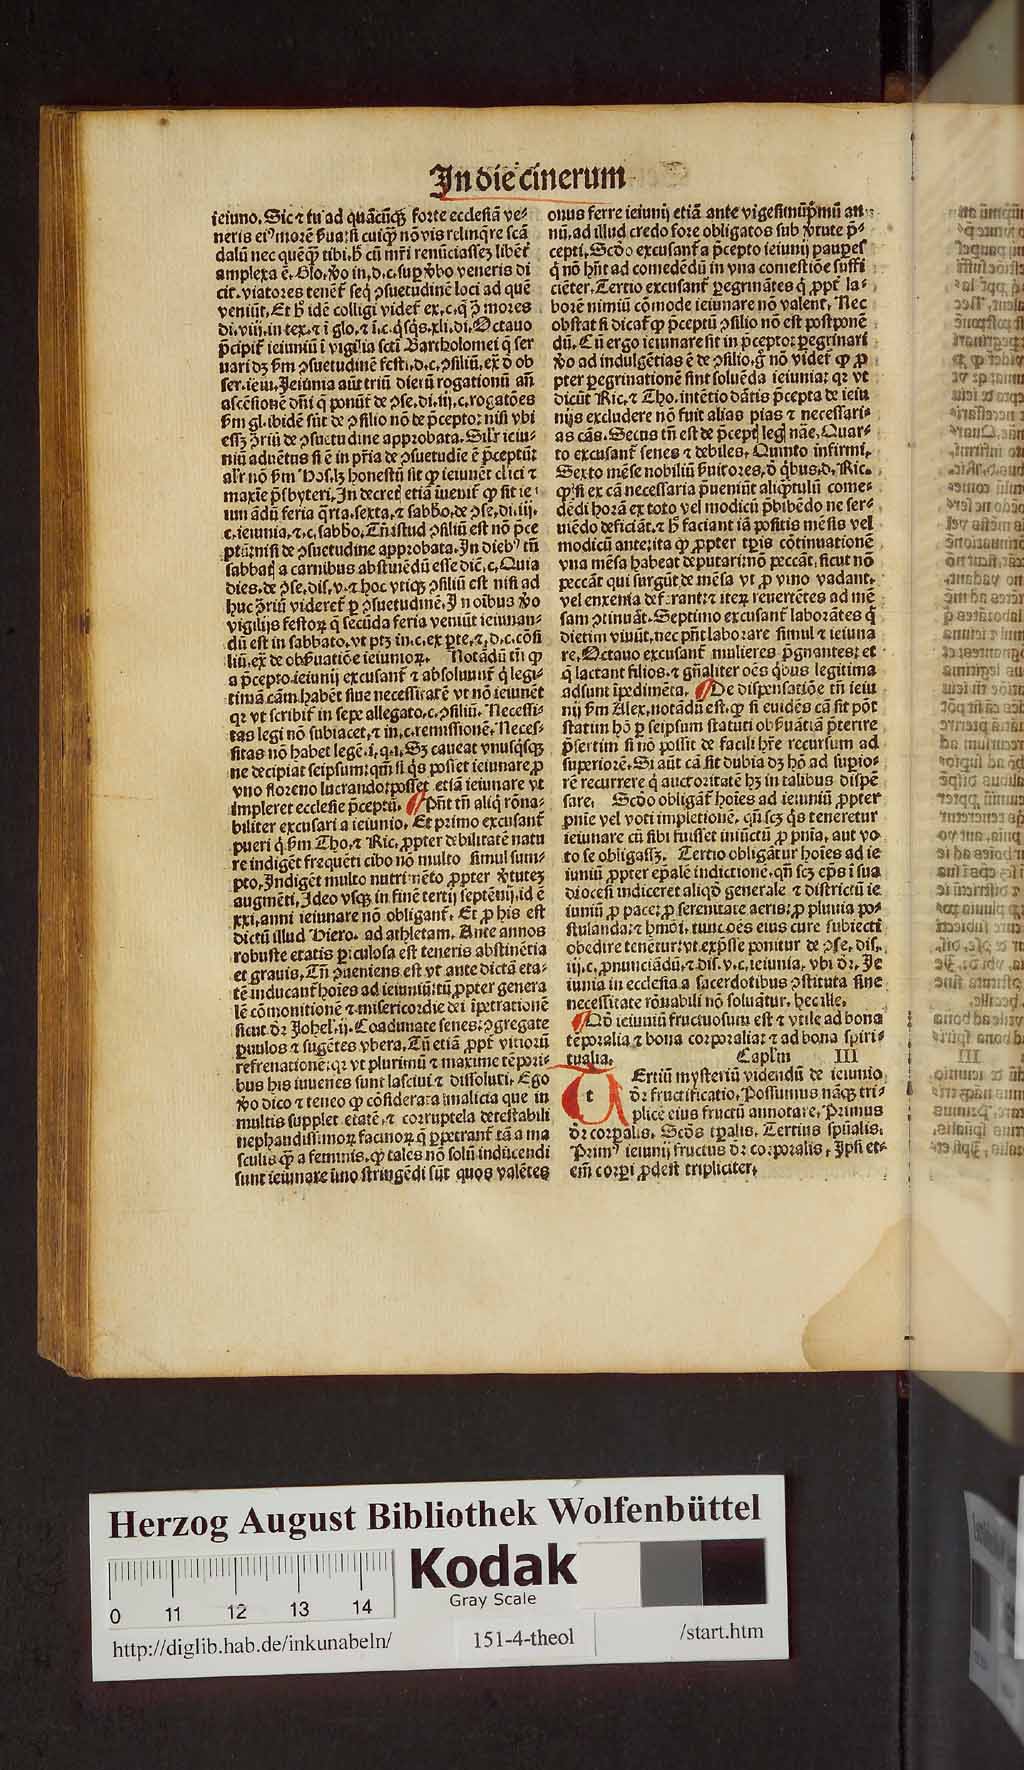 In die cinerum
ieiuno. Sic ⁊ tu ad quãcũqꝫ forte ecclesiã ve⸗
neris eiꝰ morẽ ẜua: si cuiqꝫ nõ vis relinq̃re scã
dalũ nec quẽqꝫ tibi. hͦ cũ mr̃i renũciasseꝫ libẽt̃
amplexa ẽ. Glo. ꝟo in. d. c. suꝑ ꝟbo veneris di
cit. viatores tenẽt̃ seq̃ ꝯsuetudinẽ loci ad quẽ
veniũt. Et hͦ idẽ colligi videt̃ ex. c. q̃ ꝯ̃ mores
di. viij. in tex. ⁊ ĩ glo. ⁊ ĩ. c. q̃sq̃s. xli. di. Octauo
p̃cipit̃ ieiuniũ ĩ vigilia sctĩ Bartholomei q̃ ser
uari dꝫ ẜm ꝯsuetudinẽ festi. d. c. ꝯsiliũ. ex̃ d̃ ob
ser. ieiu. Ieiunia aũt triũ dierũ rogationũ añ
ascẽsionẽ dñi q̃ ponũt̃ de ꝯse. di. iij. c. rogatões
ẜm gl. ibidẽ sũt de ꝯsilio nõ de p̃cepto: nisi vbi
esſꝫ ꝯ̃riũ de ꝯsuetudine approbata. Silr̃ ieiu⸗
niũ aduẽtus si ẽ in pr̃ia de ꝯsuetudie ẽ p̃ceptũ:
alr̃ nõ ẜm Hos. lꝫ honestũ sit ꝙ ieiunẽt clici ⁊
maxie p̃sbyteri. In decret̃ etiã iuenit̃ ꝙ sit ie
iunãdũ feria q̃rta. sexta. ⁊ sabbo. de ꝯse. di. iij.
c. ieiunia. ⁊. c. sabbo. Tñ istud ꝯsiliũ est nõ p̃ce
ptũ: nisi de ꝯsuetudine approbata. In diebꝰ tñ
sabbat̃ a carnibus abstinẽdũ esse diẽ. c. Quia
dies. de ꝯse. dis. v. ⁊ hoc vtiqꝫ ꝯsiliũ est nisi ad
huc ꝯ̃riũ videret̃ ꝑ ꝯsuetudinẽ. In oĩbus ꝟo
vigilijs festoꝝ q̃ secũda feria veniũt ieiunan⸗
dũ est in sabbato. vt ptꝫ in. c. ex ꝑte. ⁊. d. c. cõsi
liũ. ex̃ de obẜuatiõe ieiunioꝝ. Notãdũ tñ ꝙ
a p̃cepto ieiunij excusant̃ ⁊ absoluunt̃ q̃ legi⸗
timã cãm habẽt siue necessitatẽ vt nõ ieiunẽt
qꝛ vt scribit̃ in sepe allegato. c. ꝯsiliũ. Necessi⸗
tas legi nõ subiacet. ⁊ in. c. remissionẽ. Neces⸗
sitas nõ habet legẽ. i. q. i. Sꝫ caueat vnusq̃sqꝫ
ne decipiat seipsum: qm̃ si q̃s posset ieiunare ꝓ
vno floreno lucrando: posset etiã ieiunare vt
impleret ecclesie p̃ceptũ. Pñt tñ aliq̃ rõna⸗
biliter excusari a ieiunio. Et primo excusant̃
pueri q̃ ẜm Tho. ⁊ Ric. ꝓpter debilitatẽ natu
re indigẽt frequẽti cibo nõ multo simul sum⸗
pto. Indigẽt multo nutrimẽto ꝓpter ꝟtuteꝫ
augmẽti. Ideo vsqꝫ in finẽ tertij septẽnij. id ẽ
xxi. anni ieiunare nõ obligant̃. Et ꝓ his est
dictũ illud Hiero. ad athletam. Ante annos
robuste etatis ꝑiculosa est teneris abstinẽtia
et grauis. Tñ ꝯueniens est vt ante dictã eta⸗
tẽ inducant̃ hoies ad ieiuniũ: tũ ꝓpter genera
lẽ cõmonitionẽ ⁊ misericordie dei ĩpetrationẽ
sicut dr̃ Iohel. ij. Coadunate senes: ꝯgregate
ꝑuulos ⁊ sugẽtes vbera. Tũ etiã ꝓpt̃ vitiorũ
refrenationẽ: qꝛ vt plurimũ ⁊ maxime tẽpori⸗
bus his iuuenes sunt lasciui ⁊ dissoluti. Ego
ꝟo dico ⁊ teneo ꝙ cõsiderata malicia que in
multis supplet etatẽ. ⁊ corruptela detestabili
nephandissimoꝝ facinoꝝ q̃ ꝑpetrant̃ tã a ma
sculis q̃ꝫ a feminis. ꝙ tales nõ solũ inducendi
sunt ieiunare ĩmo stringẽdi sũt quos valẽtes
onus ferre ieiunij etiã ante vigesimũp̃mũ an⸗
nũ. ad illud credo fore obligatos sub ꝟtute p̃⸗
cepti. Scd̃o excusant̃ a p̃cepto ieiunij pauꝑes
q̃ nõ hñt ad comedẽdũ in vna comestiõe suffi
ciẽter. Tertio excusant̃ ꝑegrinãtes q̃ ꝓpt̃ la⸗
borẽ nimiũ cõmode ieiunare nõ valent. Nec
obstat si dicat̃ ꝙ p̃ceptũ ꝯsilio nõ est postponẽ
dũ. Cũ ergo ieiunare sit in p̃cepto: ꝑegrinari
ꝟo ad indulgẽtias ẽ de ꝯsilio. g̃ nõ videt̃ ꝙ ꝓ
pter ꝑegrinationẽ sint soluẽda ieiunia: qꝛ vt
dicũt Ric. ⁊ Tho. intẽtio dãtis p̃cepta de ieiu
nijs excludere nõ fuit alias pias ⁊ necessari⸗
as cãs. Secus tñ est de p̃cept̃ leg̃ nãe. Quar⸗
to excusant̃ senes ⁊ debiles. Quinto infirmi.
Sexto mẽse nobiliũ ẜuitores. d̃ q̃bus. d. Ric.
ꝙ si ex cã necessaria p̃ueniũt aliq̃tulũ come⸗
dẽdi horã ex toto vel modicũ p̃bibẽdo ne ser⸗
uiẽdo deficiãt. ⁊ hͦ faciant iã positis mẽsis vel
modicũ ante: ita ꝙ ꝓpter tp̃is cõtinuationẽ
vna mẽsa habeat deputari: nõ peccãt. sicut nõ
peccãt qui surgũt de mẽsa vt ꝓ vino vadant.
vel enxenia deferant: ⁊ iteꝝ reuertẽtes ad mẽ
sam ꝯtinuãt. Septimo excusant̃ laborãtes q̃
dietim viuũt. nec pñt laborare simul ⁊ ieiuna
re. Octauo excusant̃ mulieres p̃gnantes: et
q̃ lactant filios. ⁊ gñaliter oẽs q̃bus legitima
adsunt ĩpedimẽta. De dispensatiõe tñ ieiu
nij ẜm Alex. notãdũ est. ꝙ si euidẽs cã sit põt
statim hõ ꝑ seipsum statuti obẜuãtiã p̃terire
p̃sertim si nõ possit de facili hr̃e recursum ad
superiorẽ. Si aũt cã sit dubia dꝫ hõ ad supio⸗
rẽ recurrere q̃ auctoritatẽ hꝫ in talibus dispẽ
sare. Scd̃o obligat̃ hoĩes ad ieiuniũ ꝓpter
pñie vel voti impletionẽ. qñ scꝫ q̃s teneretur
ieiunare cũ sibi fuisset iniũctũ ꝓ pñia. aut vo
to se obligasſꝫ. Tertio obligãtur hoĩes ad ie
iuniũ ꝓpter ep̃alẽ indictionẽ. qñ scꝫ ep̃s ĩ sua
diocesi indiceret aliqd̃ generale ⁊ districtũ ie
iuniũ ꝓ pace: ꝓ serenitate aeris: ꝓ pluuia po⸗
stulanda: ⁊ hmõi. tunc oẽs eius cure subiecti
obedire tenẽtur: vt exp̃sse ponitur de ꝯse. dis.
iij. c. ꝓnunciãdũ. ⁊ dis. v. c. ieiunia. vbi dr̃. Ie
iunia in ecclesia a sacerdotibus ꝯstituta sine
necessitate rõnabili nõ soluãtur. hec ille.
Qd̃ ieiuniũ fructuosum est ⁊ vtile ad bona
tẽporalia ⁊ bona corporalia: ⁊ ad bona spiri⸗
tualia. Caplm̃ III
Tertiũ mysteriũ videndũ de ieiunio
dr̃ fructificatio. Possumus nãqꝫ tri⸗
plicẽ eius fructũ annotare. Primus
dr̃ corꝑalis. Scd̃s tp̃alis. Tertius spũalis.
Primꝰ ieiunij fructus dr̃ corporalis. Ipsi et⸗
em̃ corꝑi ꝓdest tripliciter.
Herzog August Bibliothek Wolfenbüttel
Kodak
Gray Scale
0 11 12 13 14
http://diglib.hab.de/inkunabeln/ 151-4-theol /start.htm